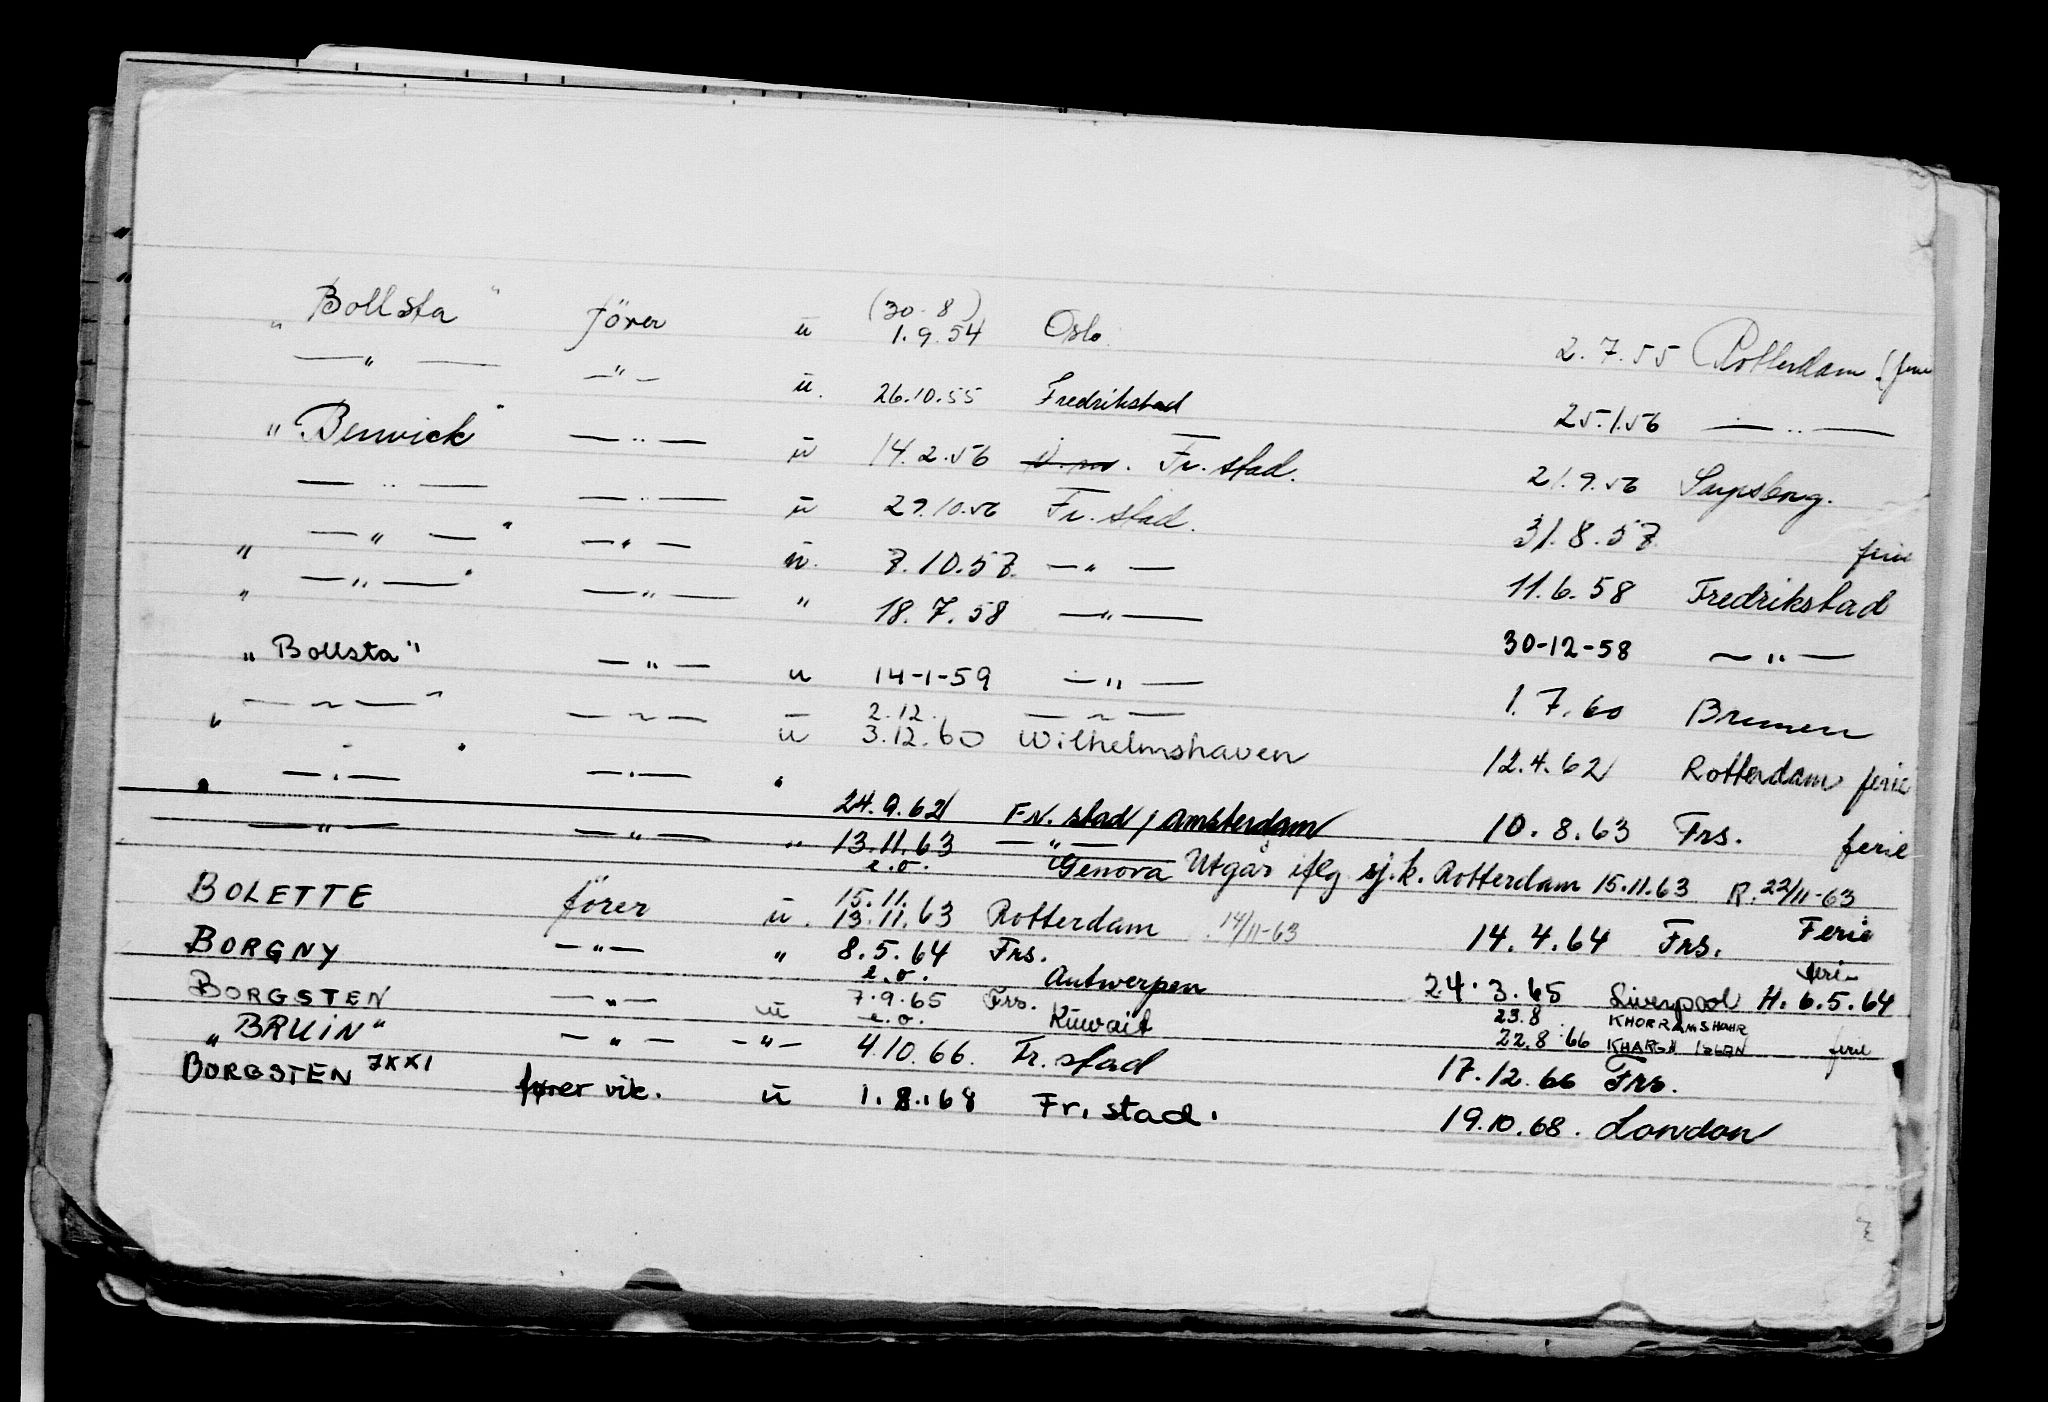 „ Bollsta " förer u (30-8) 1.9.54 Oslo. 2.7.55 Rotterdam (ferie
— " — — " — u. 26.10.55 Fredrikstad 25.1.56 — " —
„ Benwick " — " — u 14.2.56 Fr. stad. 21.9.56 Sarpsborg.
— " — — " — u 29.10.56 Fr. stad. 31.8.57 ferie
„ — " — " — " — u. 7.10.57. — " — 11.6.58 Fredrikstad
„ — " — " — " — " 18.7.58 — " — 30-12-58 — " —
„ Bollsta " — " — u 14-1-59 — " — 1.7.60 Bremen
— " — " — " — — 2.12. — " —
„ " u 3.12.60 Wilhelmshaven 12.4.62 Rotterdam ferie
„ — " — — " — " 24.9.62 Fr. stad / Amsterdam 10.8.63 Frs. ferie
— " — — " — " 13.11.63 — " —
e.o. Genova Utgår iflg sj.k. Rotterdam 15.11.63 R. 22/11-63
BOLETTE förer u. 15.11. 13.11.63 Rotterdam 14/11-63 14.4.64 Frs. Ferie
BORGNY — " — " 8.5.64 Frs. ferie
e.o. Antwerpen 24.3.65 Liverpool H. 6.5.64
BORGSTEN — " — u 7.9.65 Frs. 23.8 KHORRAMSHAHR
e.o. Kuwait 22.8.66 KHARGH ISLAN ferie
„ BRUIN " — " — — " — 4.10.66. Fr. stad 17.12.66 Frs.
BORGSTEN JXXI fører vik. u 1.8.68 Fr. stad. 19.10.68. London